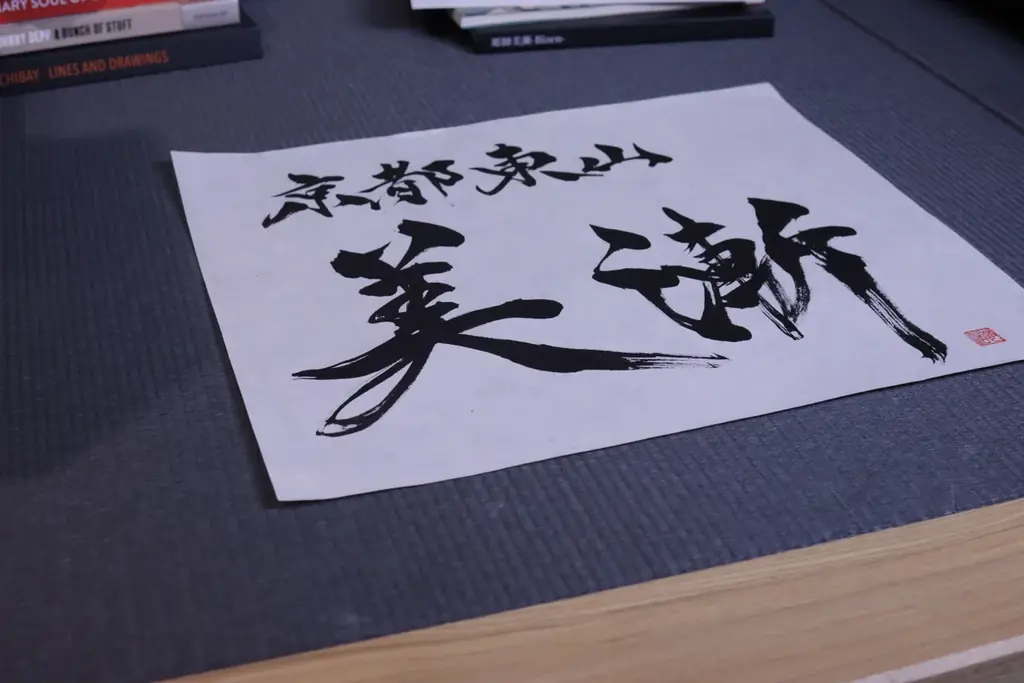 ARY SOUL OF
A BUNCH OF STUFF
CHIBAY LINES AND DRAWINGS
京都東山
美漸